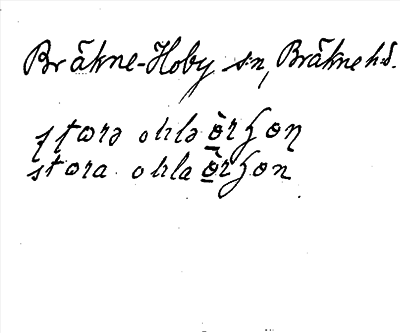 Bräkne-Hoby sn, Bräkne hd.
stora okla örhon
stora okla örhon